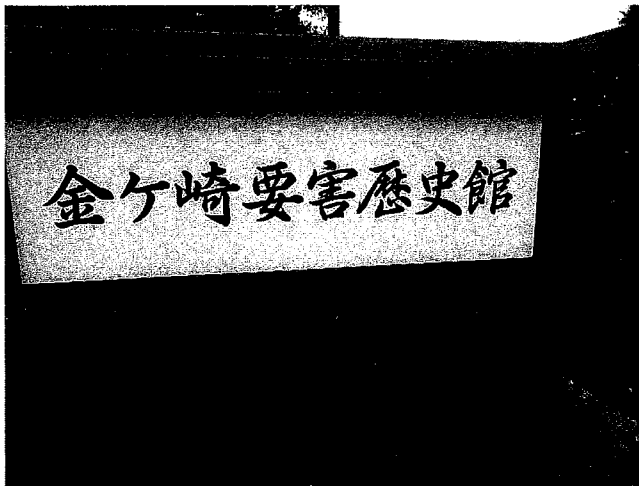 金ケ崎要害歴史館